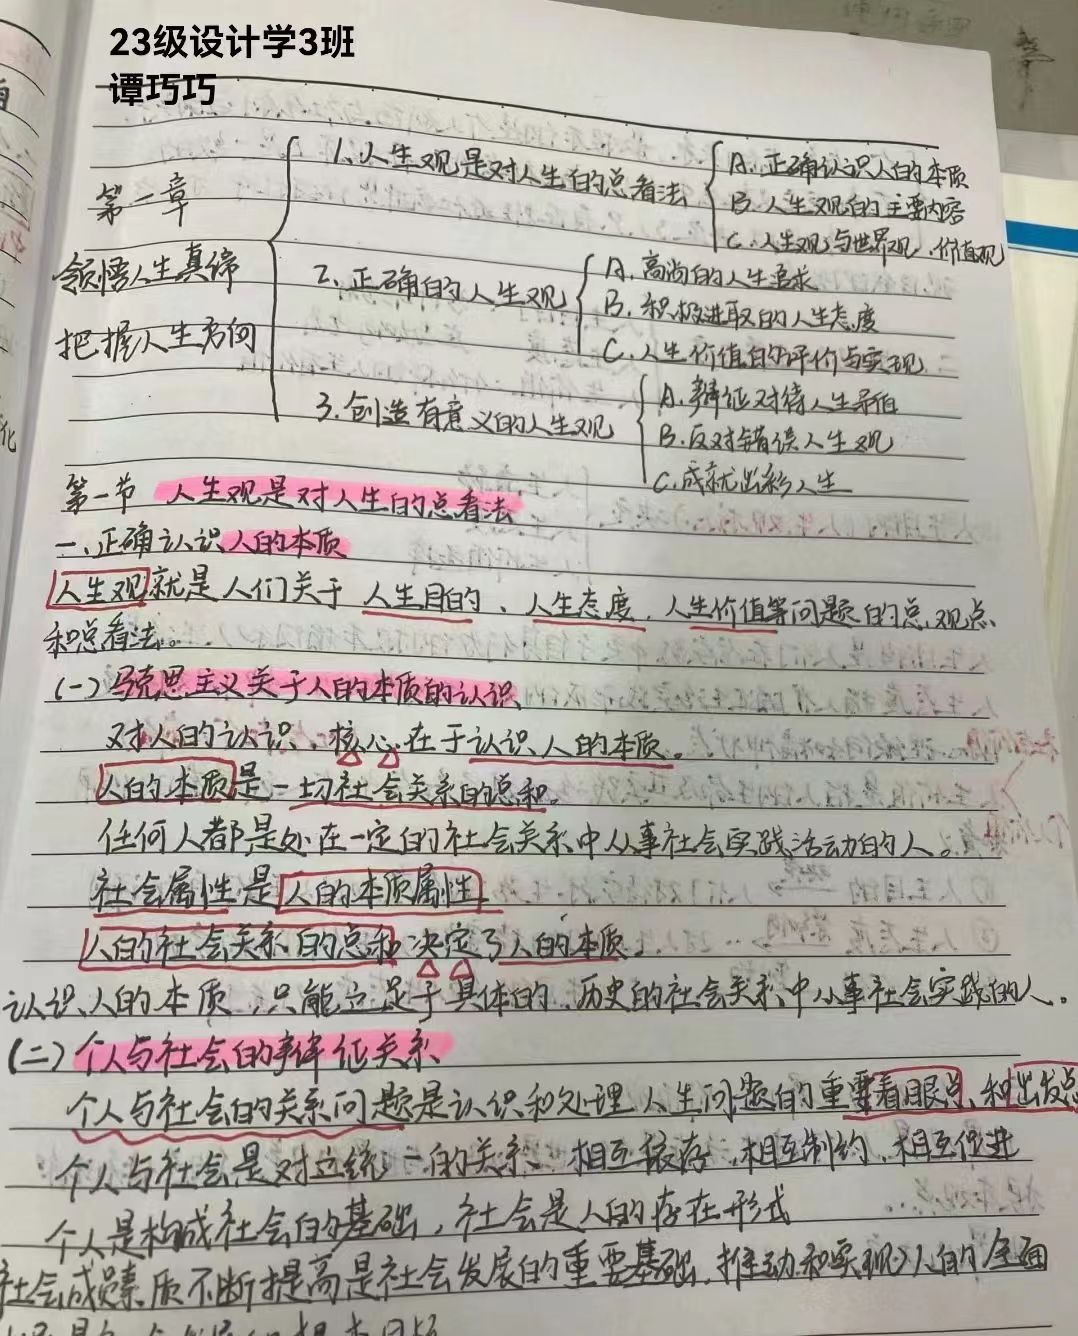 23级设计学3班
谭巧巧
第一章
领悟人生真谛
把握人生方向
1、人生观是对人生的总看法
A.正确认识人的本质
B.人生观的主要内容
C.人生观与世界观、价值观
2.正确的人生观
A.高尚的人生追求
B.积极进取的人生态度
C.人生价值的评价与实现
3.创造有意义的人生观
A.辩证对待人生矛盾
B.反对错误人生观
C.成就出彩人生
第一节 人生观是对人生的总看法
一、正确认识人的本质
人生观就是人们关于人生目的、人生态度、人生价值等问题的总观点
和总看法。
(一)马克思主义关于人的本质的认识
对人的认识、核心在于认识人的本质。
人的本质是一切社会关系的总和。
任何人都是处在一定的社会关系中从事社会实践活动的人。
社会属性是人的本质属性
人的社会关系的总和决定了人的本质。
认识人的本质,只能立足于具体的、历史的社会关系中从事社会实践的人。
(二)个人与社会的辩证关系
个人与社会的关系问题是认识和处理人生问题的重要着眼点、和出发点
个人与社会是对立统一的关系、相互依存、相互制约、相互促进
个人是构成社会的基础,社会是人的存在形式
社会成员素质不断提高是社会发展的重要基础,推动和实现人的全面